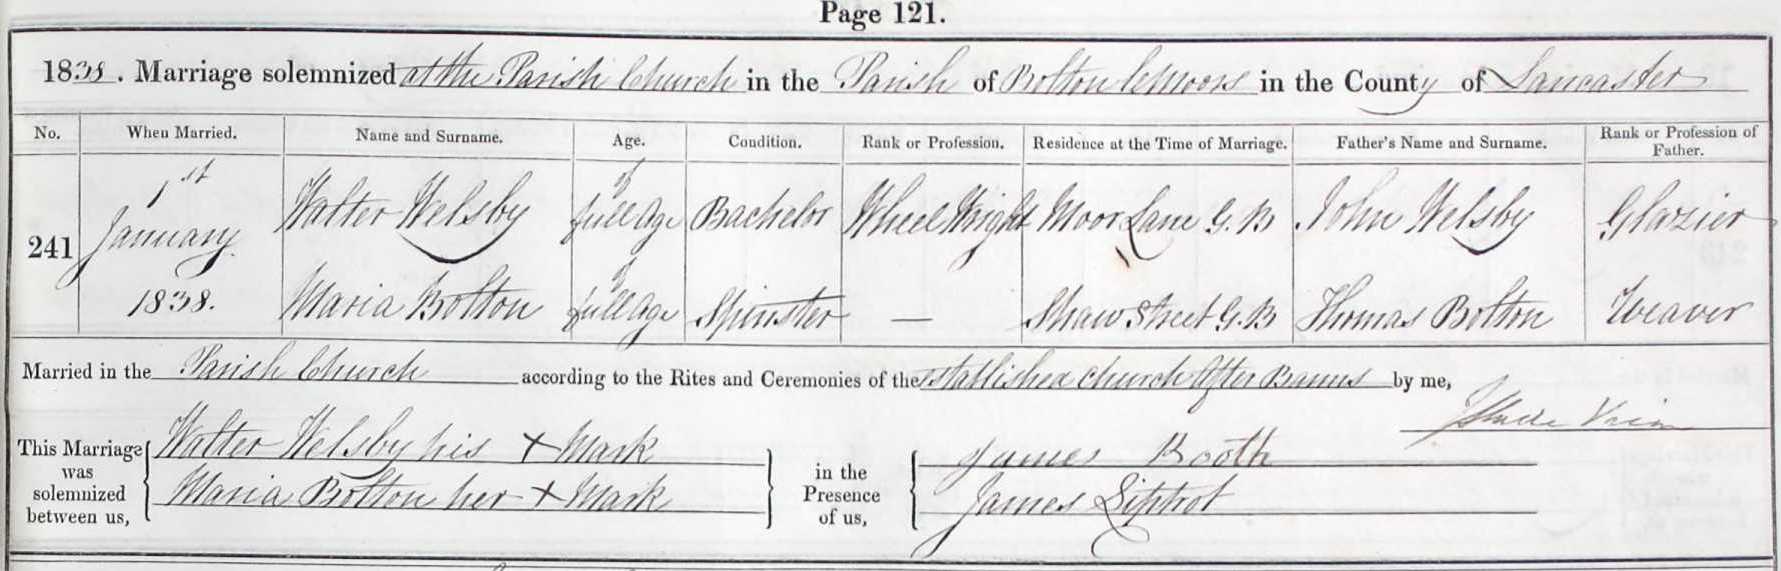 Page 121.
1838. Marriage solemnized at the Parish Church in the Parish of Bolton le Moors in the County of Lancaster
No. When Married. Name and Surname. Age. Condition. Rank or Profession. Residence at the Time of Marriage. Father's Name and Surname. Rank or Profession of Father.
241 1st January 1838. Walter Welsby of full age Bachelor Wheel Wright Moor Lane G. B John Welsby Glazier
Maria Bolton of full age Spinster — Shaw Street G. B Thomas Bolton Weaver
Married in the Parish Church according to the Rites and Ceremonies of the established church after Banns by me,
This Marriage was solemnized between us, Walter Welsby his X Mark in the Presence of us, James Booth
Maria Bolton her X Mark James Liptrot